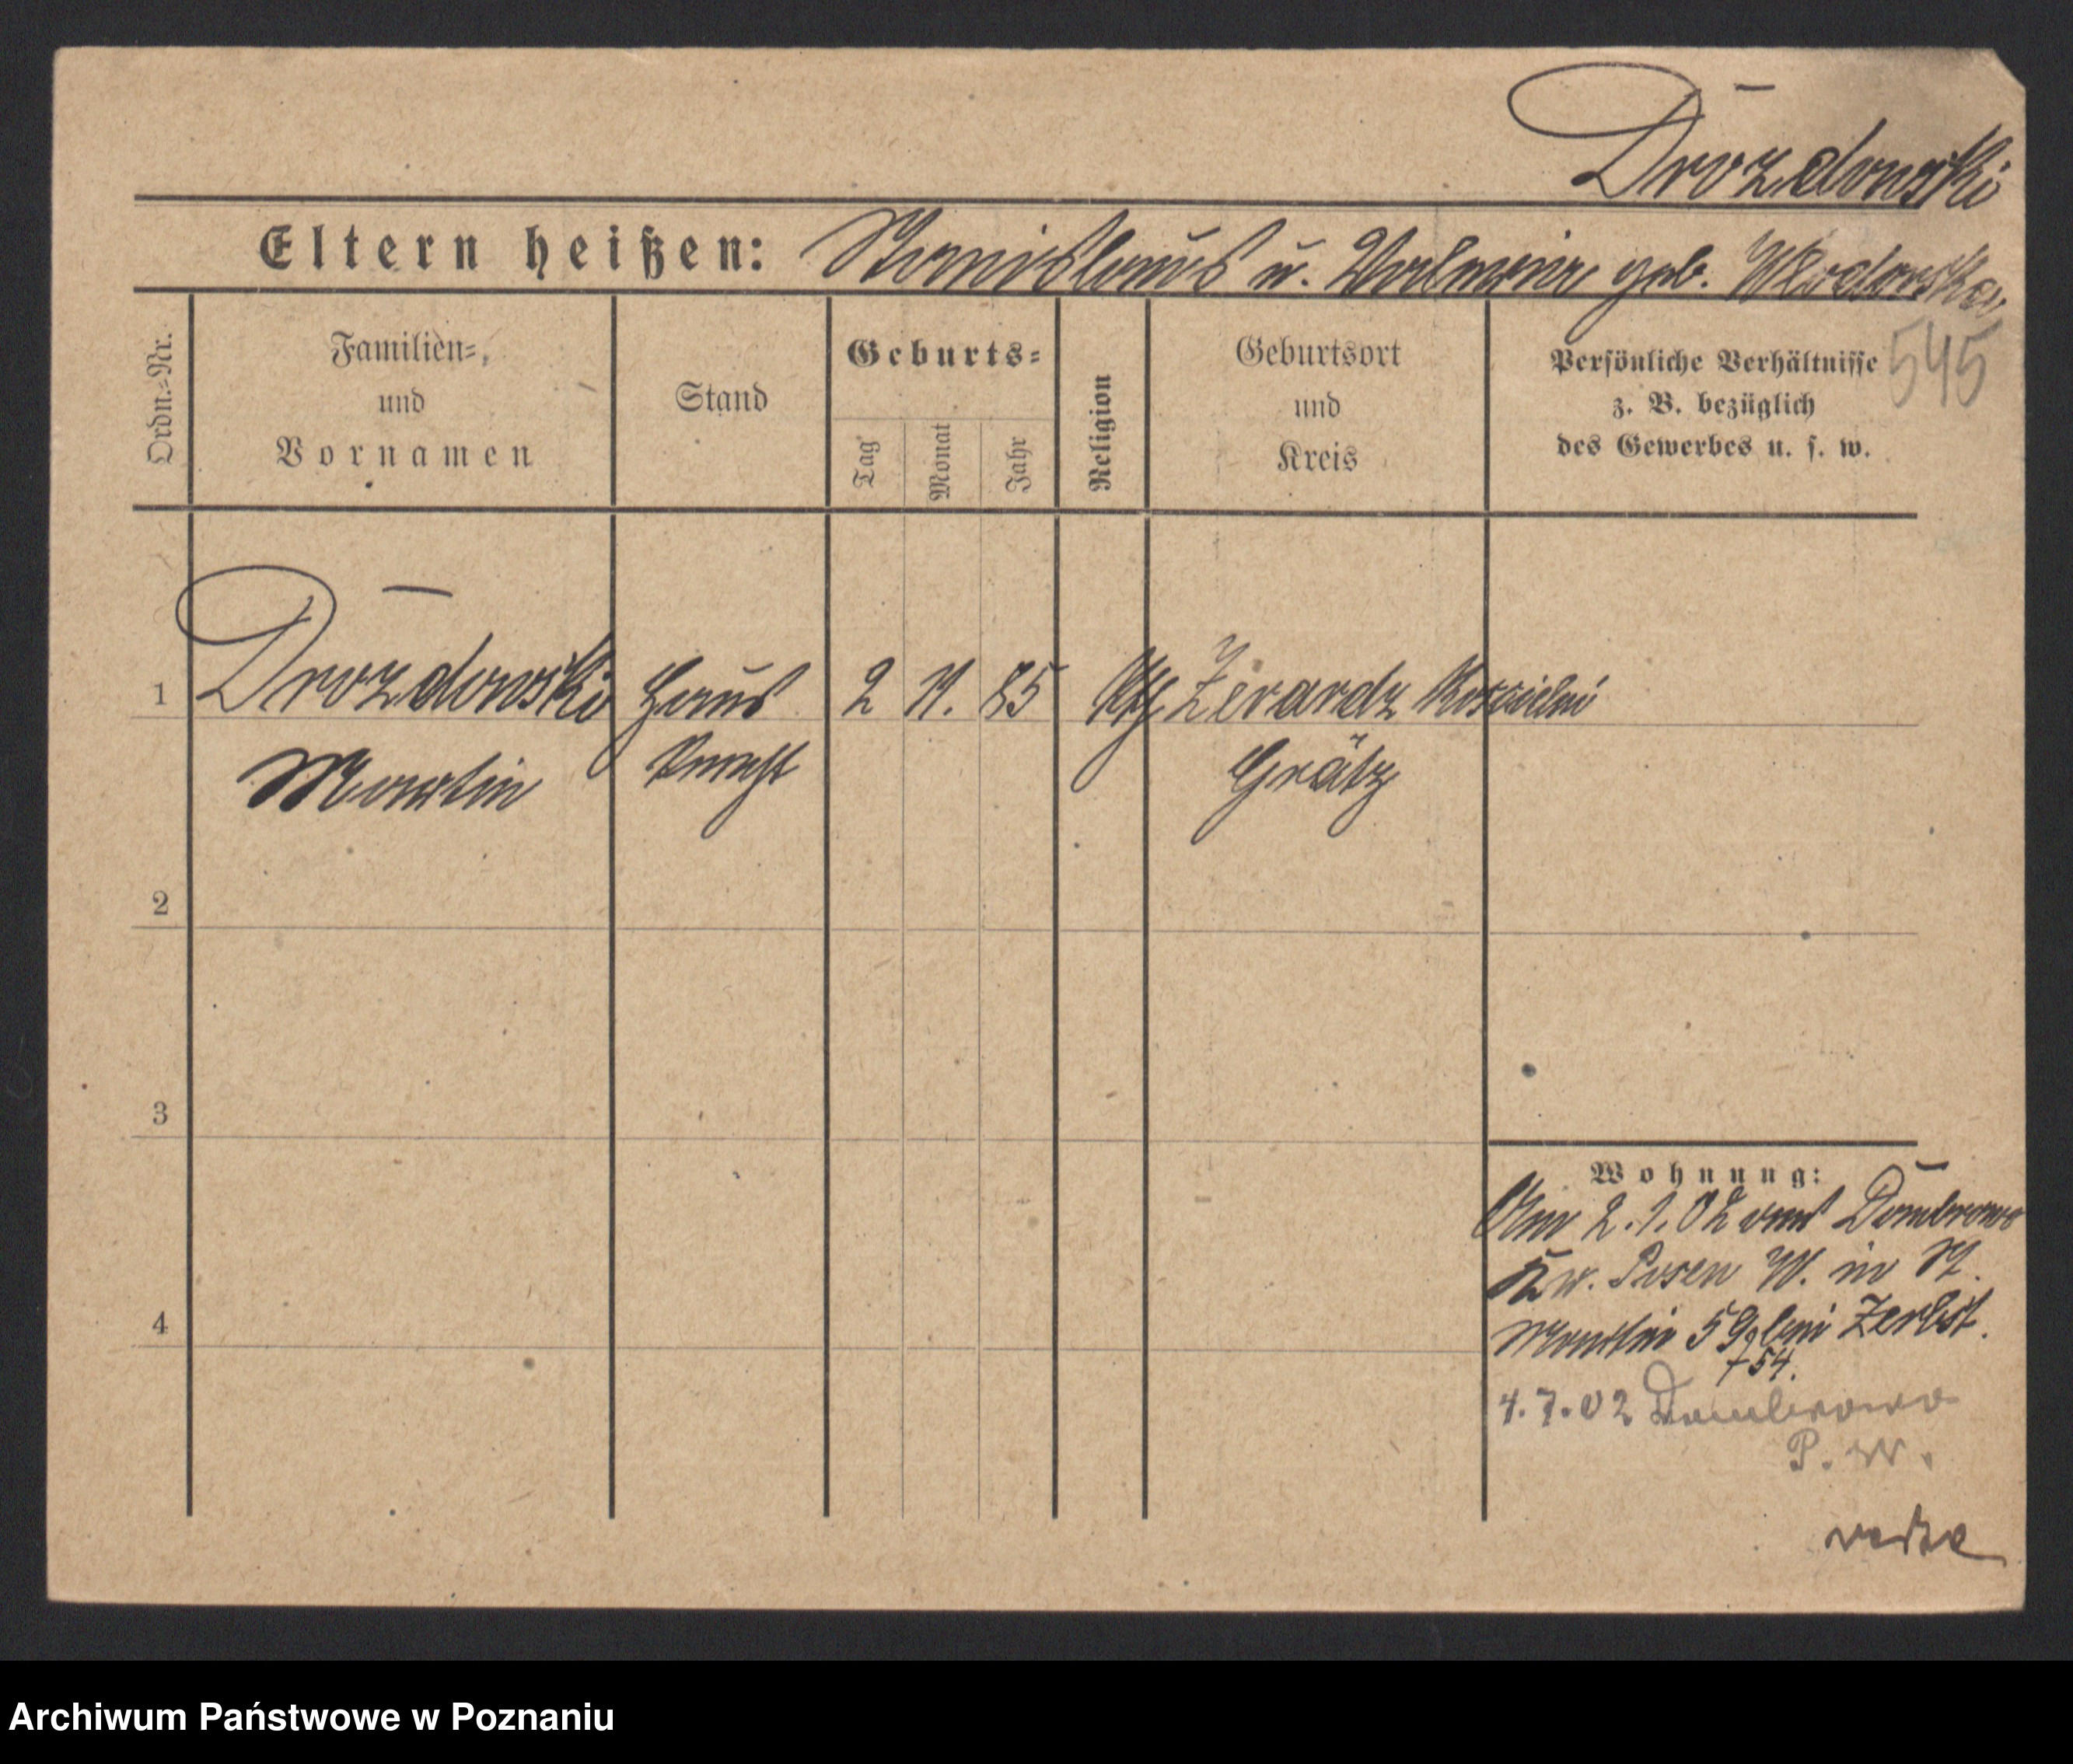 Drozdowski
Eltern heißen: Stanislaus u. geb.
545
Ordn.=Nr.
Familien=,
und
Vornamen
Stand
Geburts=
Tag
Monat
Jahr
Religion
Geburtsort
und
Kreis
Persönliche Verhältnisse
z. B. bezüglich
des Gewerbes u. s. w.
1 Drozdowski Haus 2 11. 85 Kth
Martin knecht Grätz
2
3
4
Wohnung:
Am 2.1.02 aus Dombrowo
Kr. Posen W. in St.
Martin 59 bei Zerbst.
54.
4.7.02 Dombrowo
P. W.
Archiwum Państwowe w Poznaniu